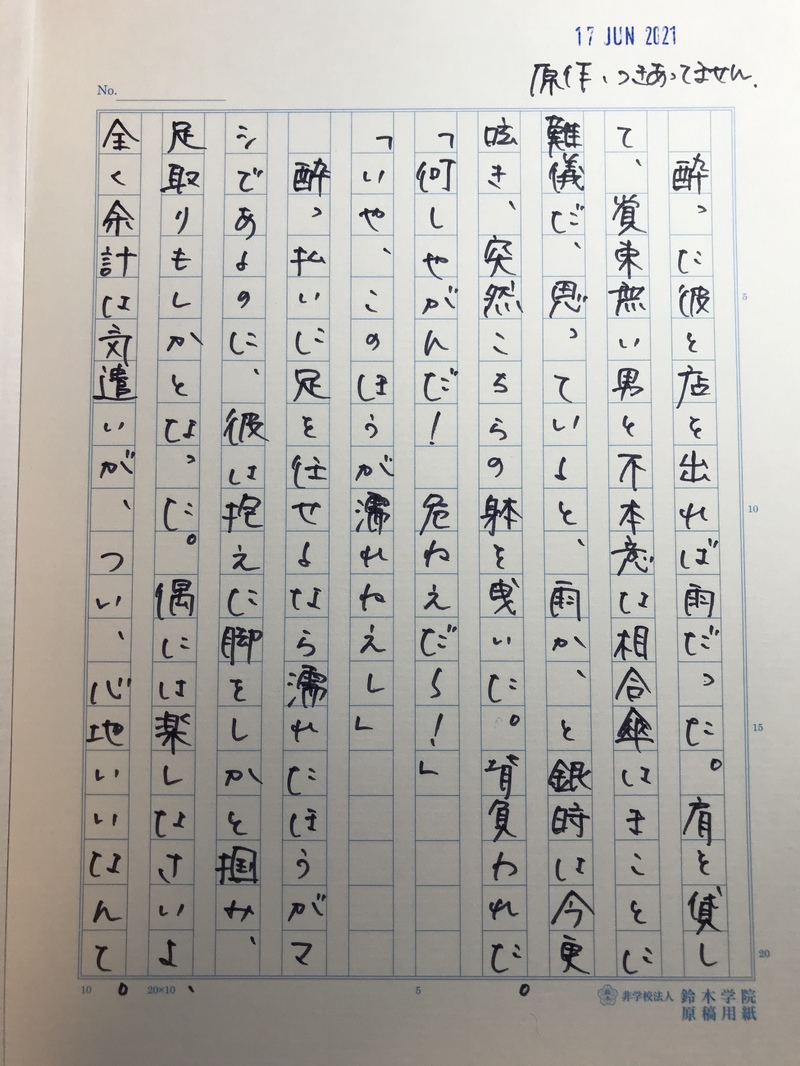 17 JUN 2021
原作、つきあってません。
No.
酔った彼と店を出れば雨だった。肩を貸し
て、覚束無い男と不本意な相合傘はまことに
難儀だ、思っていると、雨か、と銀時は今更
呟き、突然こちらの躰を曳いた。背負われた。
「何しやがんだ！　危ねえだろ！」
「いや、このほうが濡れねえし」
酔っ払いに足を任せるなら濡れたほうがマ
シであるのに、彼は抱えた脚をしかと掴み、
足取りもしかとなった。偶には楽しなさいよ、
全く余計な気遣いが、つい、心地いいなんて。
5
10
15
20
10
20×10
5
非学校法人 鈴木学院
原稿用紙